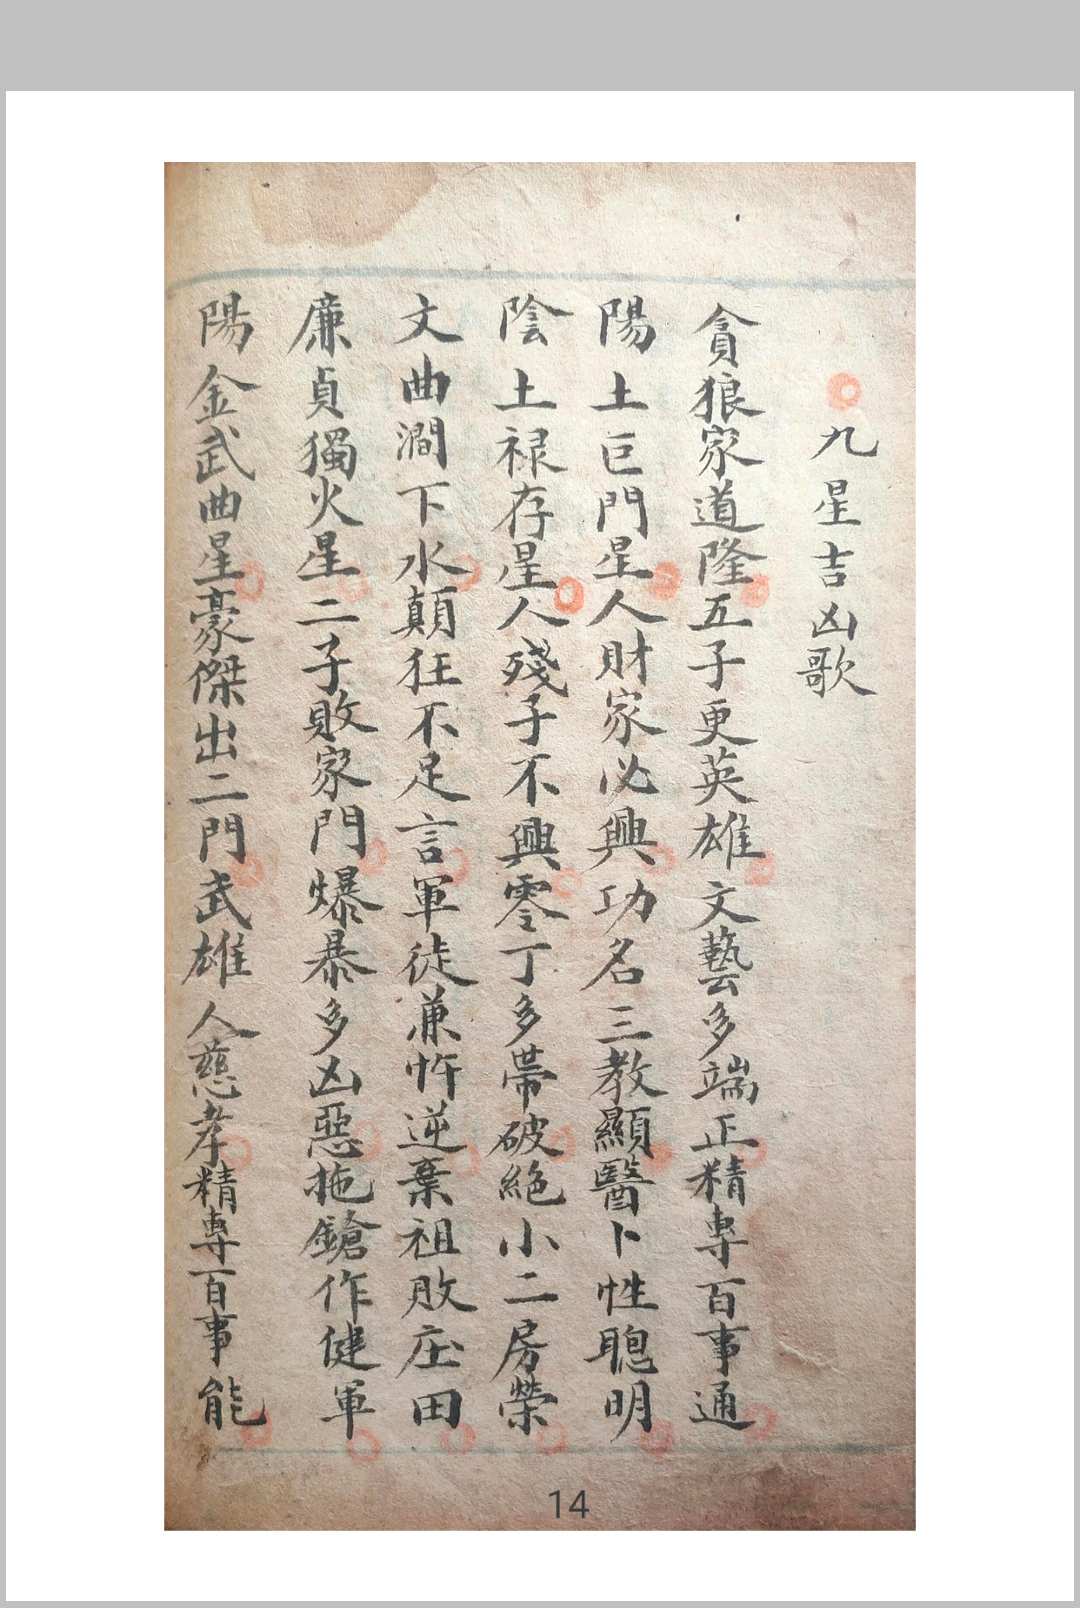 九星吉凶歌
貪狼家道隆五子更英雄文藝多端正精專百事通
陽土巨門星人財家必興功名三教顯醫卜性聰明
陰土禄存星人殘子不興零丁多帶破絕小二房榮
文曲澗下水顛狂不足言軍徒兼忤逆棄祖敗庄田
廉貞獨火星二子敗家門爆暴多凶惡拖鎗作健軍
陽金武曲星豪傑出二門武雄人慈孝精專百事能
14